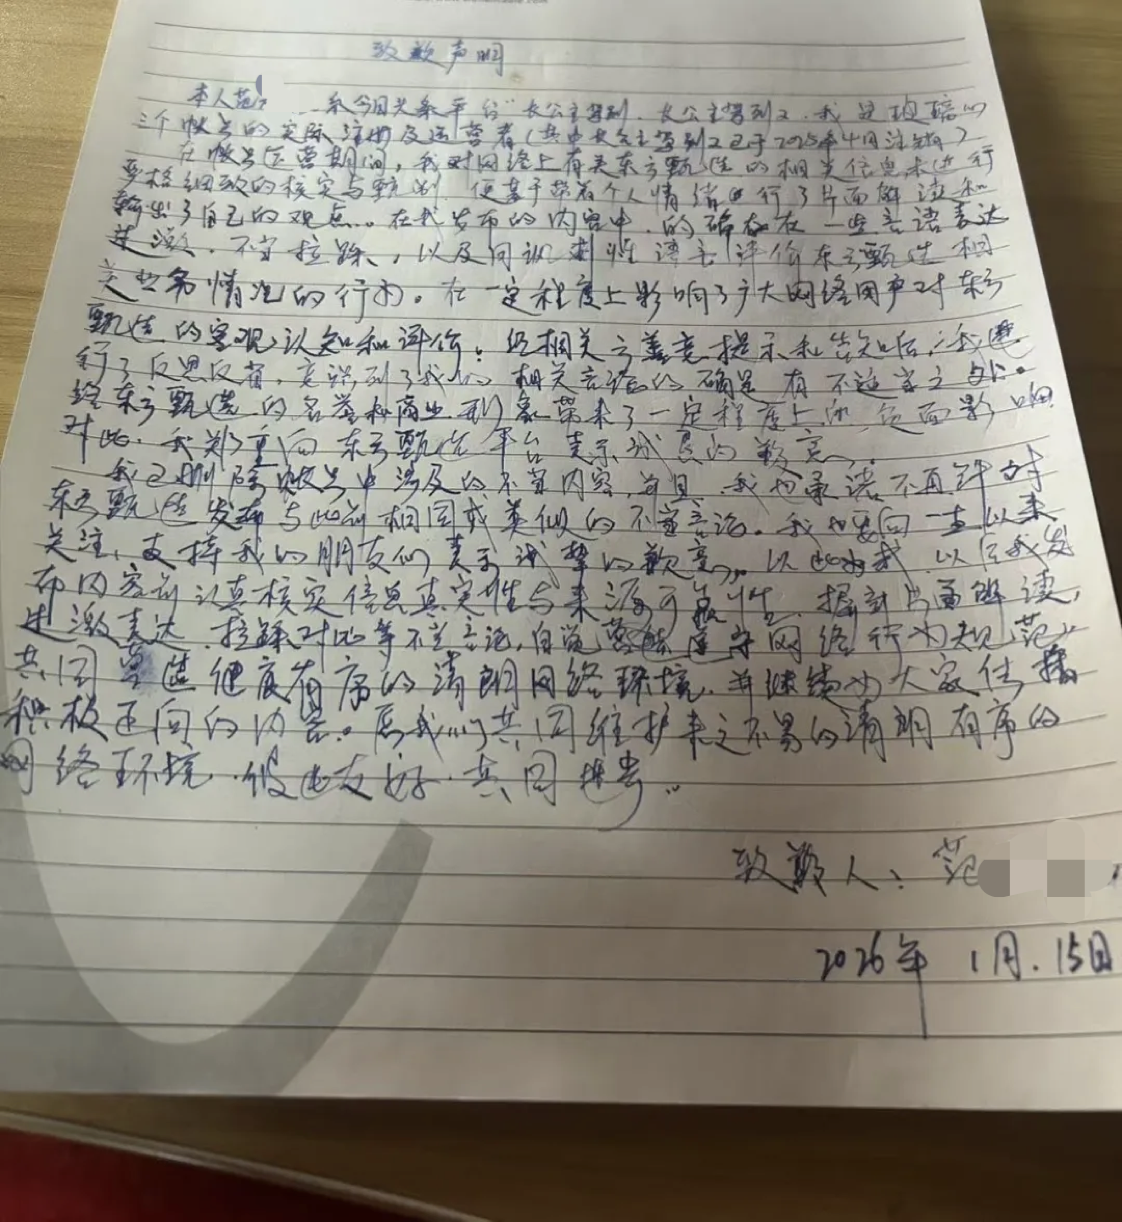 致歉声明
本人范 系今日头条平台“长公主驾到、长公主驾到2、我是坦璐的
三个帐号的实际注册及运营者(其中长公主驾到2已于2025年4月注销)
在帐号运营期间,我对网络上有关东方甄选的相关信息未进行
严格细致的核实与甄别,便基于带着个人情绪进行了片面解读和
输出了自己的观点。在我发布的内容中,的确存在一些言语表达
过激、不当拉踩、以及用讽刺性语言评价东方甄选相
关业务情况的行为。在一定程度上影响了广大网络用户对东方
甄选的客观认知和评价;经相关方善意提示和告知后,我进
行了反思反省,意识到了我的相关言语的确是有不适当之处。
给东方甄选的名誉和商业形象带来了一定程度上的负面影响
对此,我郑重向东方甄选平台表示诚恳的歉意。
我已删除帐号中涉及的不当内容,并且,我也承诺不再针对
东方甄选发布与此前相同或类似的不当言论。我也要向一直以来
关注、支持我的朋友们表示诚挚的歉意。以此为戒,以后我发
布内容前认真核实信息真实性与来源可靠性,摒弃片面解读,
过激表达、拉踩对比等不当言论,自觉遵守网络行为规范
共同营造健康有序的清朗网络环境,并继续为大家传播
积极正向的内容。愿我们共同维护来之不易的清朗有序的
网络环境,彼此友好,共同进步。
致歉人:范
2026年1月.15日